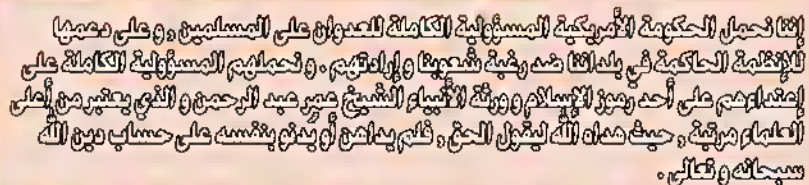 إننا نحمل الحكومة الأمريكية المسؤولية الكاملة للعدوان على المسلمين ، و على دعمها
للأنظمة الحاكمة في بلداننا ضد رغبة شعوبنا و إرادتهم . و نحملهم المسؤولية الكاملة على
إعتداءهم على أحد رموز الإسلام و ورثة الأنبياء الشيخ عمر عبد الرحمن و الذي يعتبر من أعلى
العلماء مرتبة ، حيث هداه الله ليقول الحق ، فلم يداهن أو يدنو بنفسه على حساب دين الله
سبحانه و تعالى .